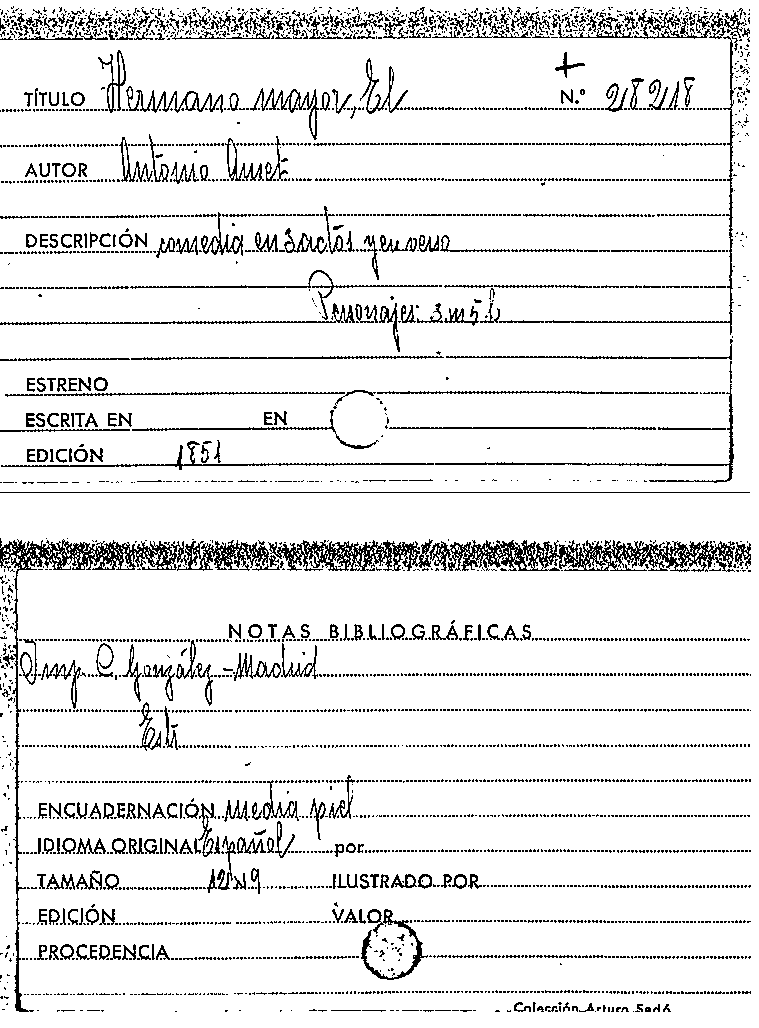 +
TÍTULO Hermano mayor, El N.º 28218
AUTOR Antonio Auset
DESCRIPCIÓN comedia en 3 actos y en verso
Personajes: 3 m 5 h
ESTRENO
ESCRITA EN EN
EDICIÓN 1851
NOTAS BIBLIOGRÁFICAS
Imp C. González - Madrid
ENCUADERNACIÓN media piel
IDIOMA ORIGINAL Español por
TAMAÑO 12x19 ILUSTRADO POR
EDICIÓN VALOR
PROCEDENCIA
Colección Arturo Sedó